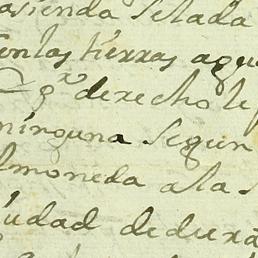 asienda Selada
Conlas tierras agu
qr derecho le
ninguna segun
lmoneda ala s
iudad dedura